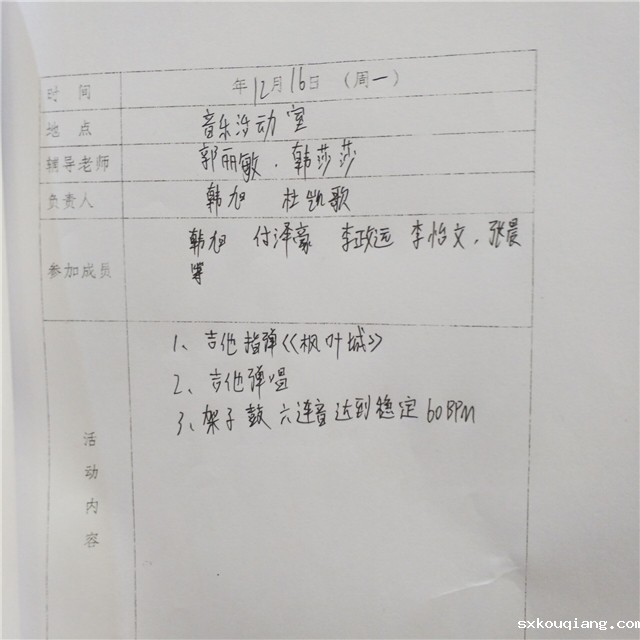 时 间 年12月16日 （周一）
地 点 音乐活动室
辅导老师 郭丽敏、韩莎莎
负责人 韩旭 杜凯歌
韩旭 付泽豪 李政远 李怡文、张晨
参加成员 等
1、吉他指弹《枫叶城》
2、吉他弹唱
3、架子鼓 六连音达到稳定60BPM
活动内容
sxkouqiang.com